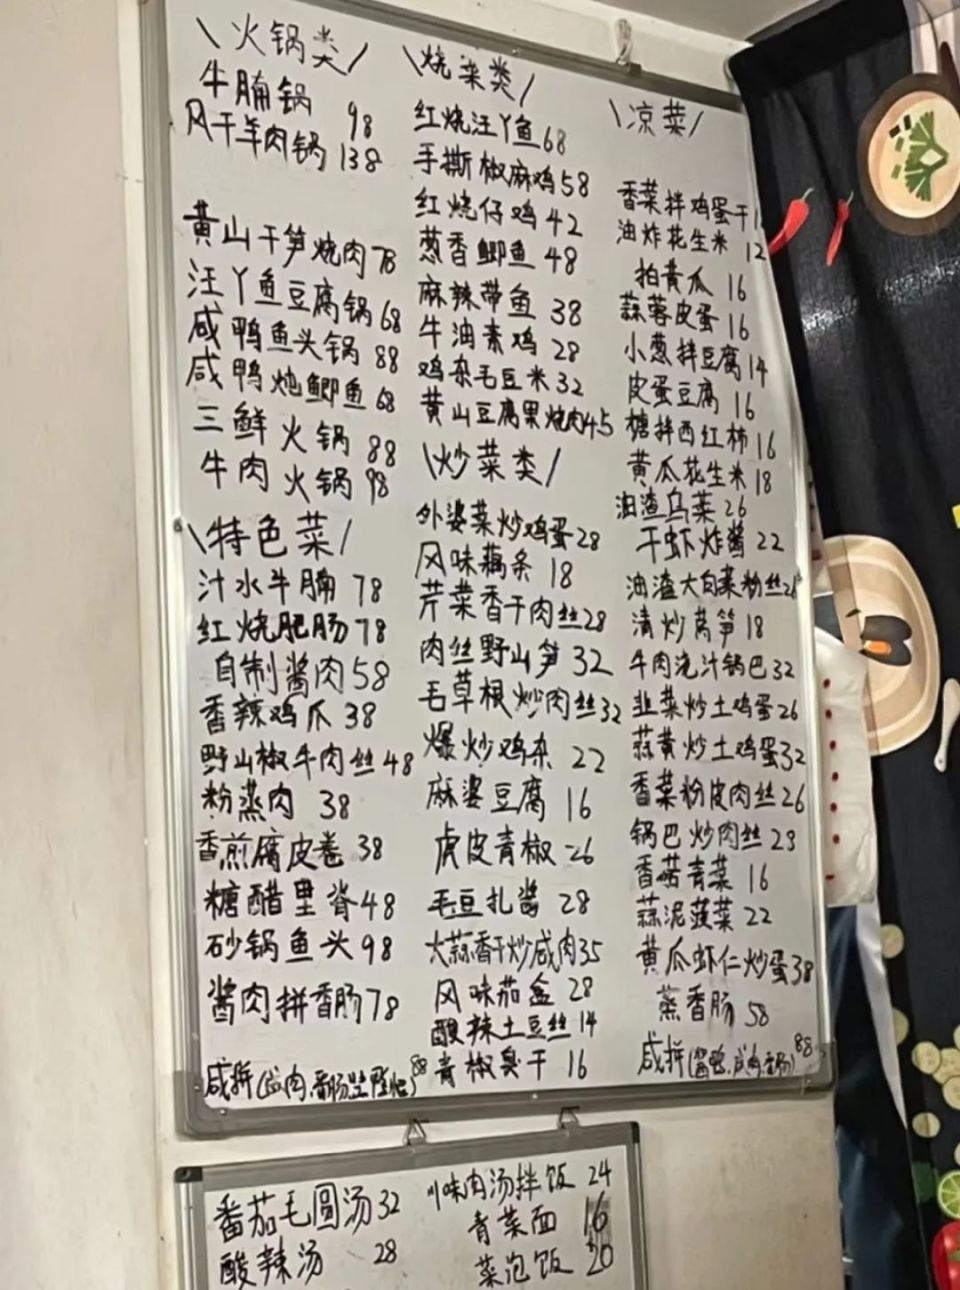 \火锅类/
牛腩锅 98
风干羊肉锅 138
黄山干笋烧肉 78
汪丫鱼豆腐锅 68
咸鸭鱼头锅 88
咸鸭炖鲫鱼 68
三鲜火锅 88
牛肉火锅 98
\特色菜/
汁水牛腩 78
红烧肥肠 78
自制酱肉 58
香辣鸡爪 38
野山椒牛肉丝 48
粉蒸肉 38
香煎腐皮卷 38
糖醋里脊 48
砂锅鱼头 98
酱肉拼香肠 78
咸拼(肉.香肠 88
\烧菜类/
红烧汪丫鱼 68
手撕椒麻鸡 58
红烧仔鸡 42
葱香鲫鱼 48
麻辣带鱼 38
牛油素鸡 28
鸡杂毛豆米 32
黄山豆腐果烧肉 45
\炒菜类/
外婆菜炒鸡蛋 28
风味藕条 18
芹菜香干肉丝 28
肉丝野山笋 32
毛草根炒肉丝 32
爆炒鸡杂 22
麻婆豆腐 16
虎皮青椒 26
毛豆扎酱 28
大蒜香干炒咸肉 35
风味茄盒 28
酸辣土豆丝 14
青椒臭干 16
\凉菜/
香菜拌鸡蛋干
油炸花生米 12
拍黄瓜 16
蒜蓉皮蛋 16
小葱拌豆腐 14
皮蛋豆腐 16
糖拌西红柿 16
黄瓜花生米 18
油渣乌菜 26
干虾炸酱 22
油渣大白菜粉丝 26
清炒莴笋 18
牛肉浇汁锅巴 32
韭菜炒土鸡蛋 26
蒜黄炒土鸡蛋 32
香菜粉皮肉丝 26
锅巴炒肉丝 28
香菇青菜 16
蒜泥菠菜 22
黄瓜虾仁炒蛋 38
蒸香肠 58
咸拼(酱鸭.咸肉.香肠) 88
番茄毛圆汤 32
酸辣汤 28
川味肉汤拌饭 24
青菜面 16
菜泡饭 20